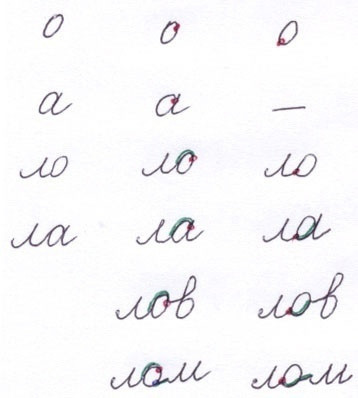 о о о
а а —
ло ло ло
ла ла ла
лов лов
лом лом